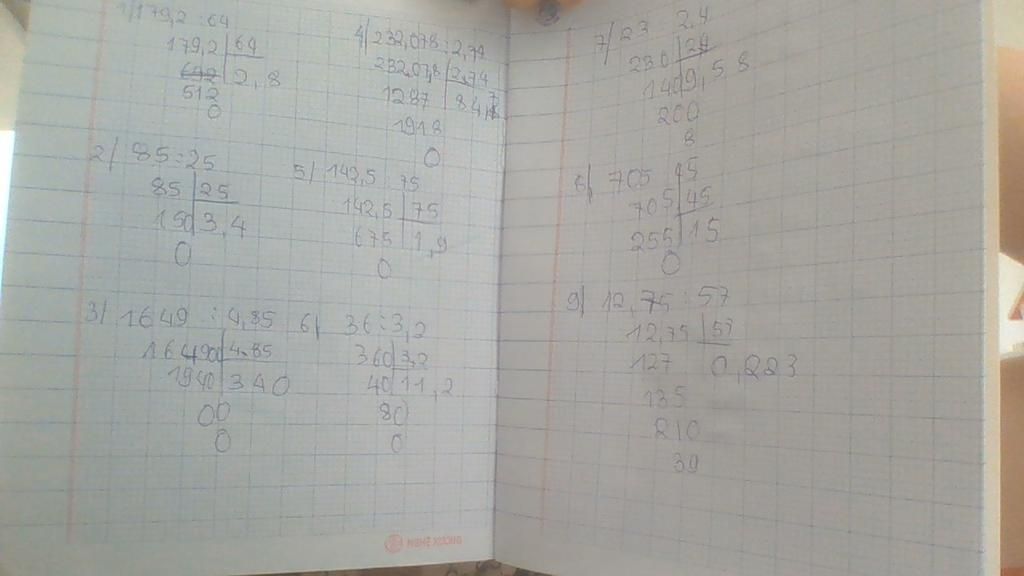 1/ 179,2 : 64
179,2 64
642 2,8
512
0
2/ 85 : 25
85 25
150 3,4
0
3/ 1649 : 4,85
16490 4.85
1940 340
00
0
4/ 232,078 : 2,74
232,07,8 2,74
1287 84,7
1918
0
5/ 142,5 : 75
142,5 75
675 1,9
0
6/ 36 : 3,2
360 3,2
40 11,2
80
0
7/ 23 2.4
230 24
140 9,58
200
8
705 45
705 45
255 15
0
9/ 12,75 : 57
12,75 57
127 0,223
135
210
39